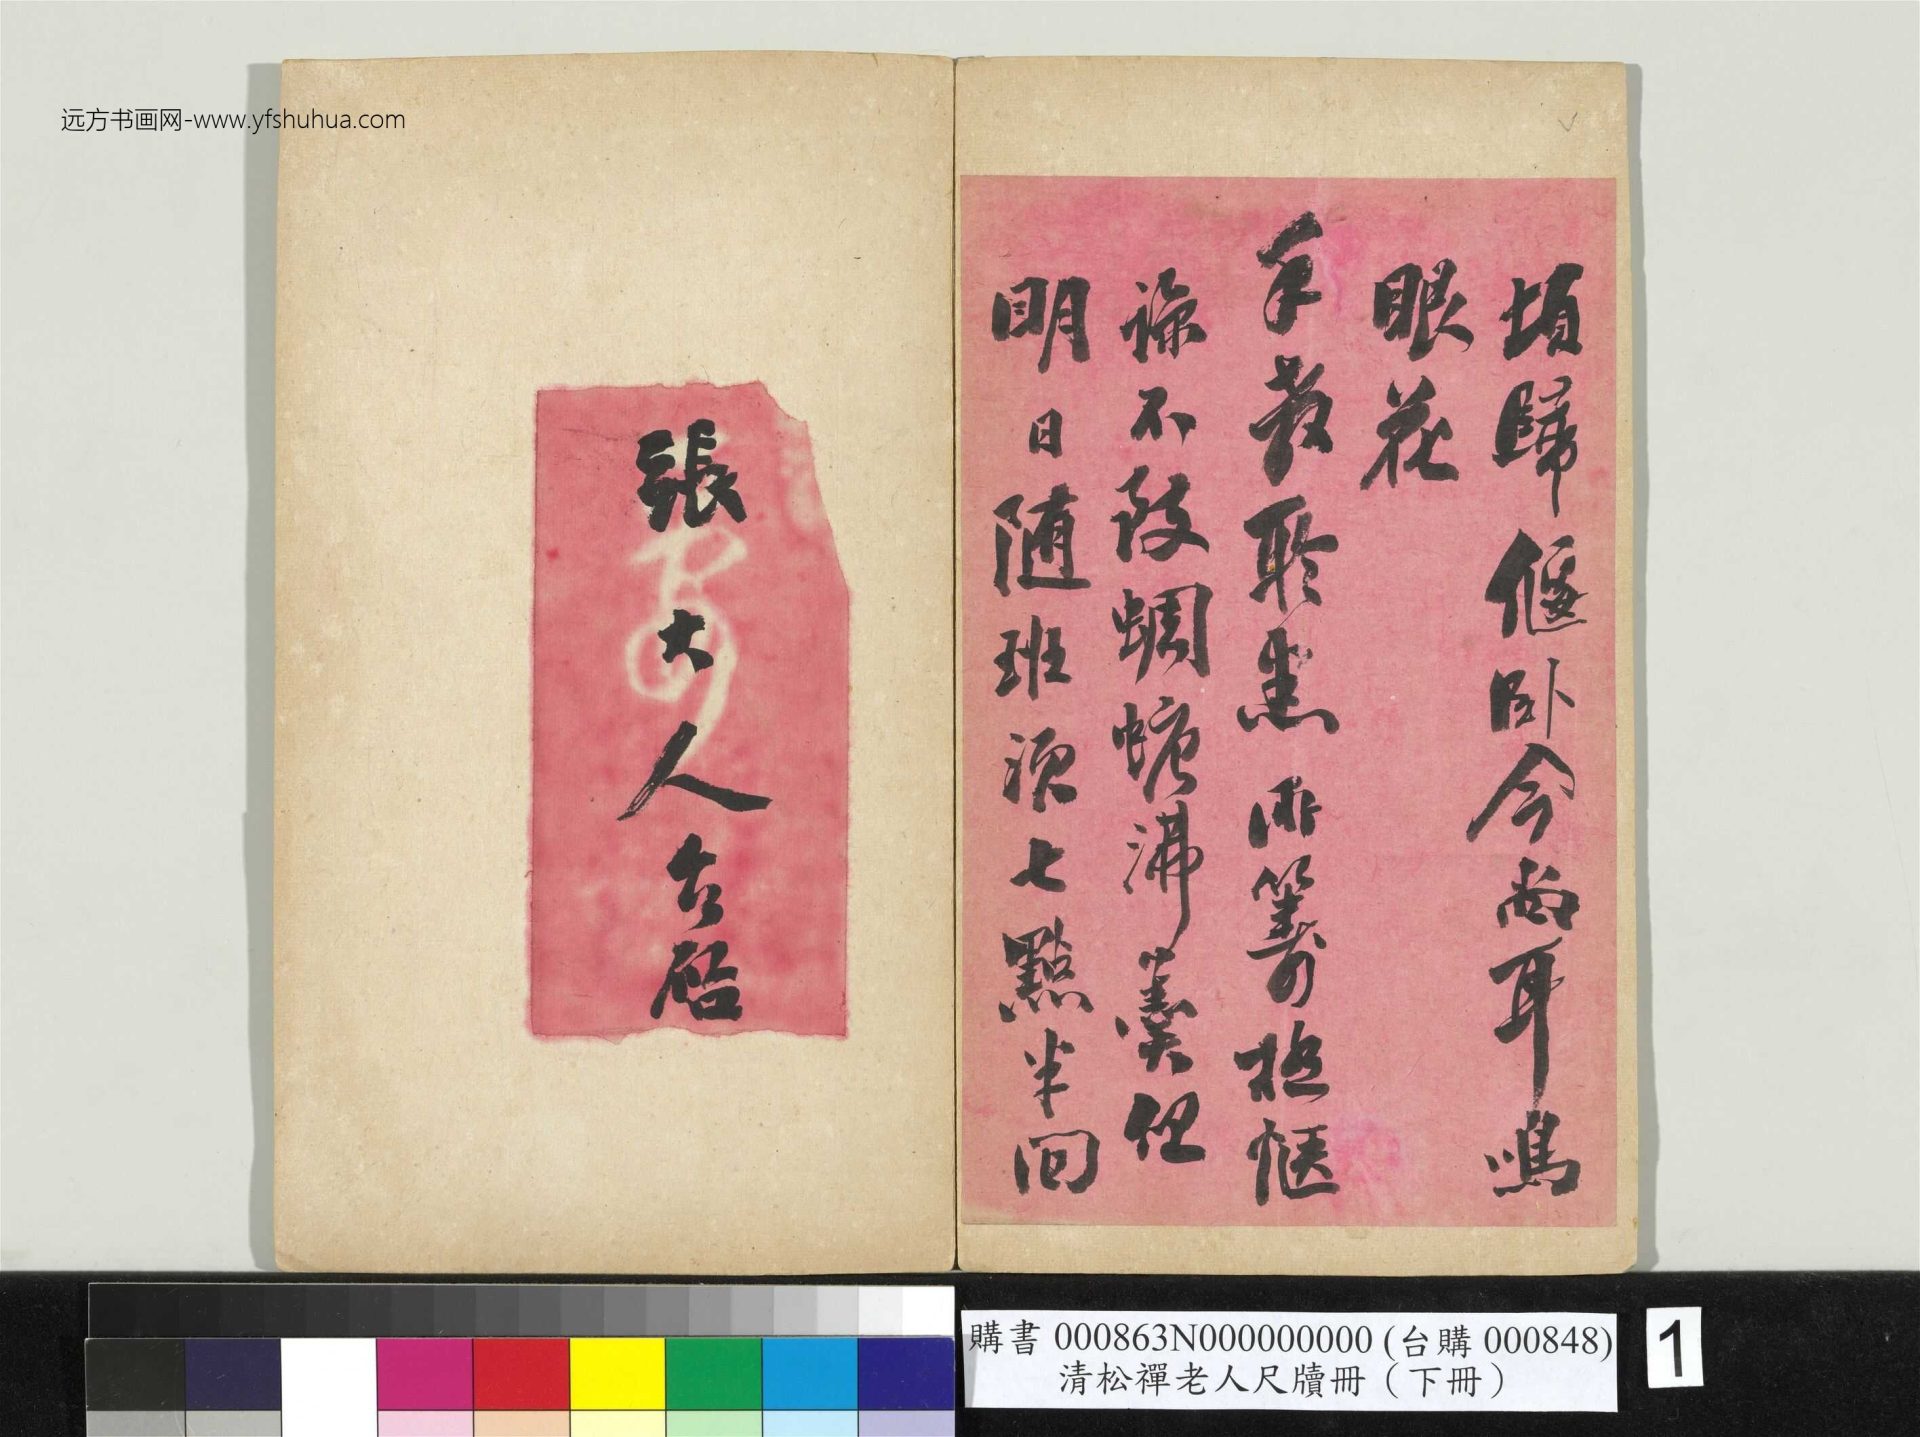 远方书画网-www.yfshuhua.com
頃歸偃卧今尚耳鳴
眼花
手教聆悉唯籌極愜
諒不致蜩螗沸羹但
明日随班須七點半回
張大人台啓
購書 000863N000000000 (台購 000848)
清松禪老人尺牘冊（下冊）
1